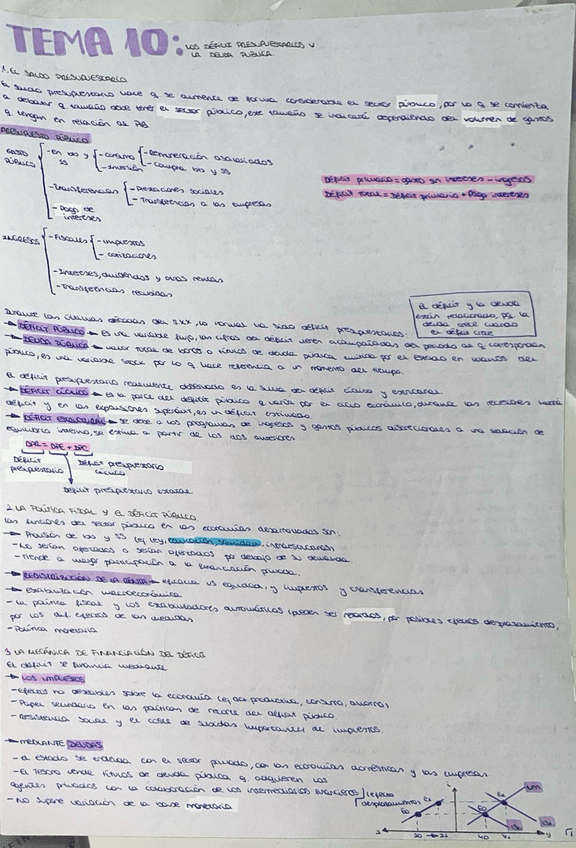 TEMA 10: LOS DÉFICIT PRESUPUESTARIOS Y
LA DEUDA PÚBLICA.
1. EL SALDO PRESUPUESTARIO
El saldo presupuestario hace q se aumente de forma considerable el sector público, por lo q se comienza
a debatir q tamaño debe tener el sector público, este tamaño se indicará dependiendo del volumen de gastos
q tengan en relación al PIB
PRESUPUESTO PÚBLICO
GASTO PÚBLICO
- En bs y SS
- consumo
- Remuneración asalariados
- compra bs y SS
- Inversión
- Transferencias
- Prestaciones sociales
- Transferencias a las empresas
- Pago de intereses
Déficit primario = gasto sin intereses - ingresos
Déficit total = déficit primario + pago intereses
INGRESOS
- Fiscales
- impuestos
- cotizaciones
- Intereses, dividendos y otras rentas
- Transferencias recibidas
El déficit y la deuda
están relacionados, pq la
deuda crece cuando
el déficit crece
Durante las últimas décadas del SXX, lo normal ha sido déficit presupuestarios.
→ DÉFICIT PÚBLICO → Es una variable flujo, las cifras de déficit van acompañadas del periodo al q corresponden
→ DEUDA PÚBLICA → valor total de bonos o títulos de deuda pública emitido por el estado en manos del
público, es una variable stock por lo q hace referencia a un momento del tiempo.
El déficit presupuestario realmente observado es la suma del déficit cíclico y estructural.
→ DÉFICIT CÍCLICO → Es la parte del déficit público q varía por el ciclo económico, durante las recesiones habrá
déficit y en las expansiones superávit, es un déficit estimado
→ DÉFICIT ESTRUCTURAL → se debe a los programas de ingresos y gastos públicos discrecionales a una situación de
equilibrio interno, se estima a partir de los dos anteriores
DPR = DPE + DPC
Déficit presupuestario
Déficit presupuestario cíclico
Déficit presupuestario estructural
2. LA POLÍTICA FISCAL Y EL DÉFICIT PÚBLICO
Las funciones del sector público en las economías desarrolladas son:
→ Provisión de bs y SS (ej ley, educación, sanidad, infraestructuras)
- No serían operados o serían operados por debajo de su demanda
- Tiende a mayor participación a la financiación privada.
→ REDISTRIBUCIÓN DE LA RENTA → eficacia vs equidad, y impuestos y transferencias
→ Estabilización macroeconómica
- La política fiscal y los estabilizadores automáticos (pueden ser retardos, por posibles efectos desplazamiento,
por los dif. efectos de las medidas
- Política monetaria
3. LA MECÁNICA DE FINANCIACIÓN DEL DÉFICIT
El déficit se financia mediante
→ LOS IMPUESTOS
- Efectos no deseables sobre la economía (ej act. productiva, consumo, ahorro)
- Papel secundario en las políticas de recorte del déficit público.
- Resistencia social y el coste de subidas importantes de impuestos.
→ MEDIANTE DEUDAS
- El Estado se endeuda con el sector privado, con las economías domésticas y las empresas
- El Tesoro vende títulos de deuda pública q adquieren los
agentes privados con la colaboración de los intermediarios financieros (efecto
desplazamiento)
- No supone variación de la base monetaria